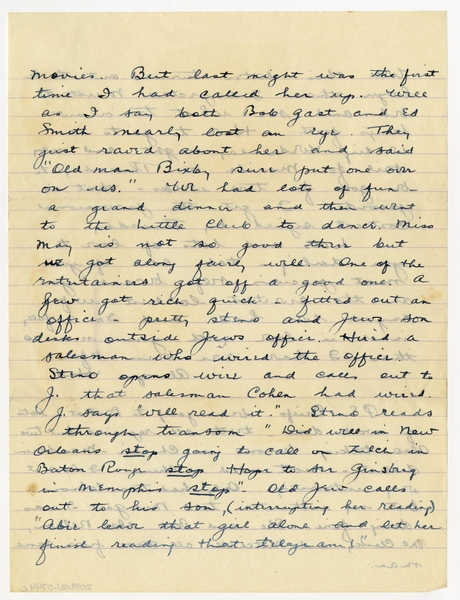 movies. But last night was the first
time I had called her up. Well
as I say both Bob Gast and Ed
Smith nearly lost an eye. They
just raved about her and said
"Old man Bixby sure put one over
on us." We had lots of fun
a grand dinner and then went
to the Little Club to dance. Miss
May is not so good there but
we got along fairly well. One of the
entertainers got off a good one. A
Jew got rich quick - fitted out an
office - pretty steno and Jews son
desks outside Jews office. Hired a
salesman who wired the office.
Steno opens wire and calls out to
J. that salesman Cohen had wired.
J. says "vell read it." Steno reads
through transom "Did well in New
Orleans stop going to call on Zilch in
Baton Rouge stop Hope to see Ginsberg
in Memphis stop". Old Jew calls
out to his son, (interrupting her reading)
"Abie leave that girl alone and let her
finish reading that telegram!"